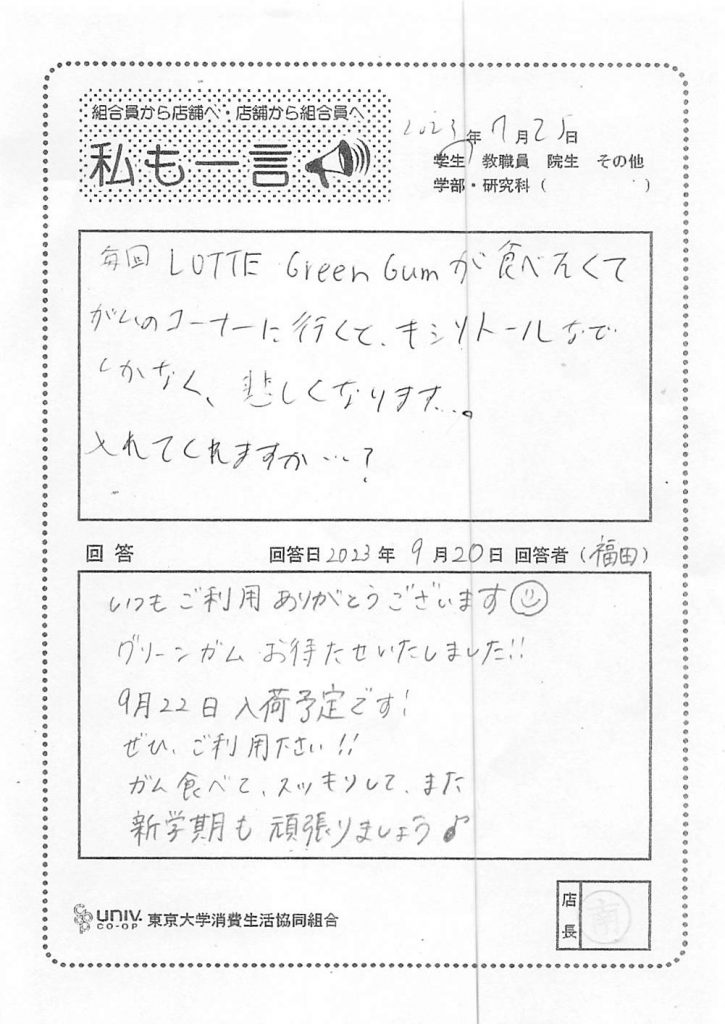 組合員から店舗へ・店舗から組合員へ
私も一言
2023年7月25日
学生 教職員 院生 その他
学部・研究科( )
毎回 LOTTE Green Gumが食べたくて
がムのコーナーに行くと、キシリトールなど
しかなく、悲しくなります…。
入れてくれますか…?
回答 回答日2023年9月20日 回答者(福田)
いつもご利用ありがとうございます
グリーンガムお待たせいたしました!!
9月22日入荷予定です!
ぜひ、ご利用下さい!!
ガム食べて、スッキリして、また
新学期も頑張りましょう♪
UNIV. CO-OP 東京大学消費生活協同組合
店長 南